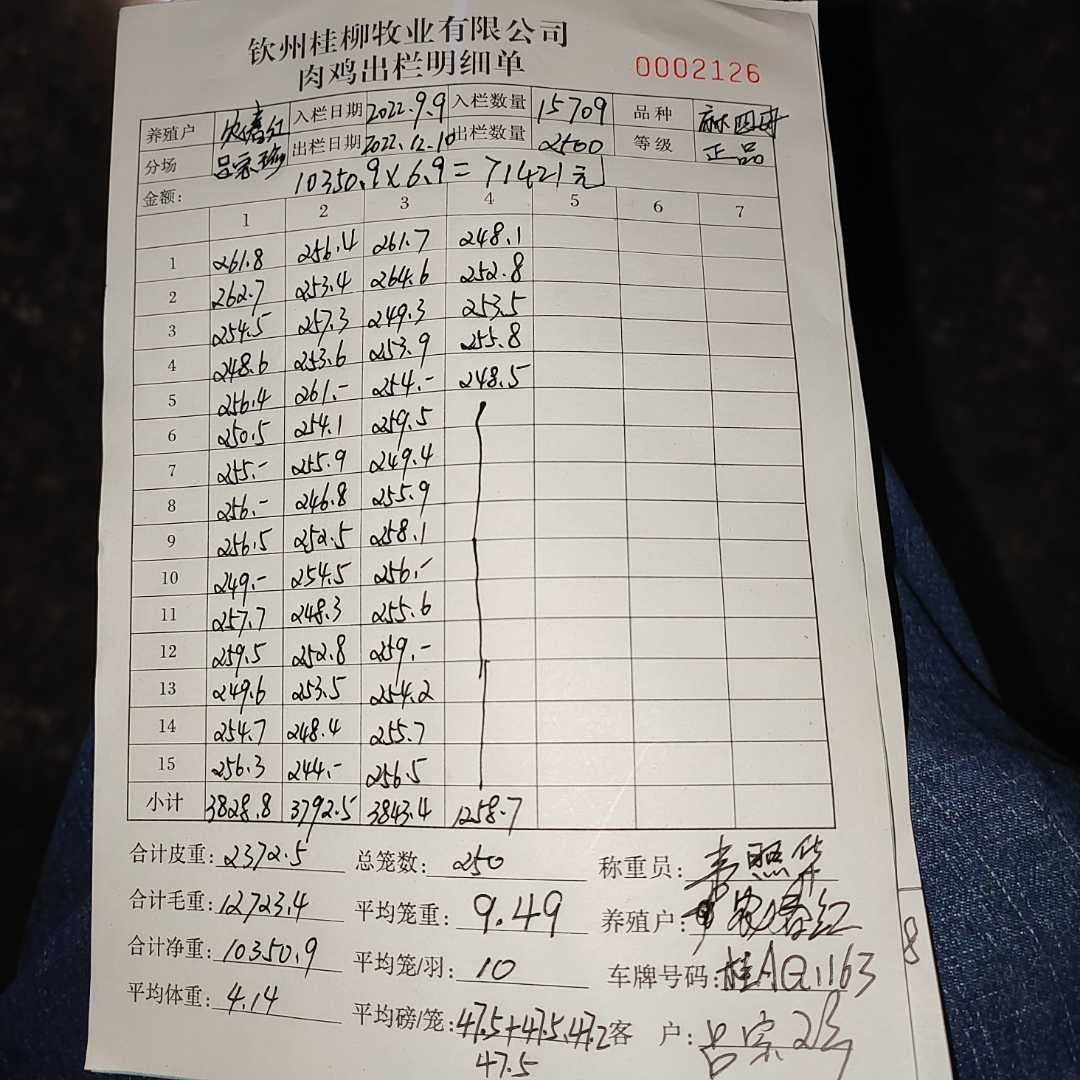 钦州桂柳牧业有限公司
肉鸡出栏明细单 0002126
养殖户 入栏日期 2022.9.9 入栏数量 15709 品种
分场 出栏日期 2022.12.10 出栏数量 2500 等级 正品
金额: 10350.9×6.9=71421元
1 2 3 4 5 6 7
1 261.8 256.4 261.7 248.1
2 262.7 253.4 264.6 252.8
3 254.5 257.3 249.3 253.5
4 248.6 253.6 253.9 255.8
5 256.4 261.- 254.- 248.5
6 250.5 254.1 259.5
7 255.- 255.9 249.4
8 256.- 246.8 255.9
9 256.5 252.5 258.1
10 249.- 254.5 256.-
11 257.7 248.3 255.6
12 259.5 252.8 259.-
13 249.6 253.5 254.2
14 254.7 248.4 255.7
15 256.3 244.- 256.5
小计 3828.8 3792.5 3843.4 1258.7
合计皮重: 2372.5 总笼数: 250 称重员:
合计毛重: 12723.4 平均笼重: 9.49 养殖户:
合计净重: 10350.9 平均笼/羽: 10 车牌号码: 桂AQ1163
平均体重: 4.14 平均磅/笼: 47.5+47.5.47.2 客户:
47.5
8